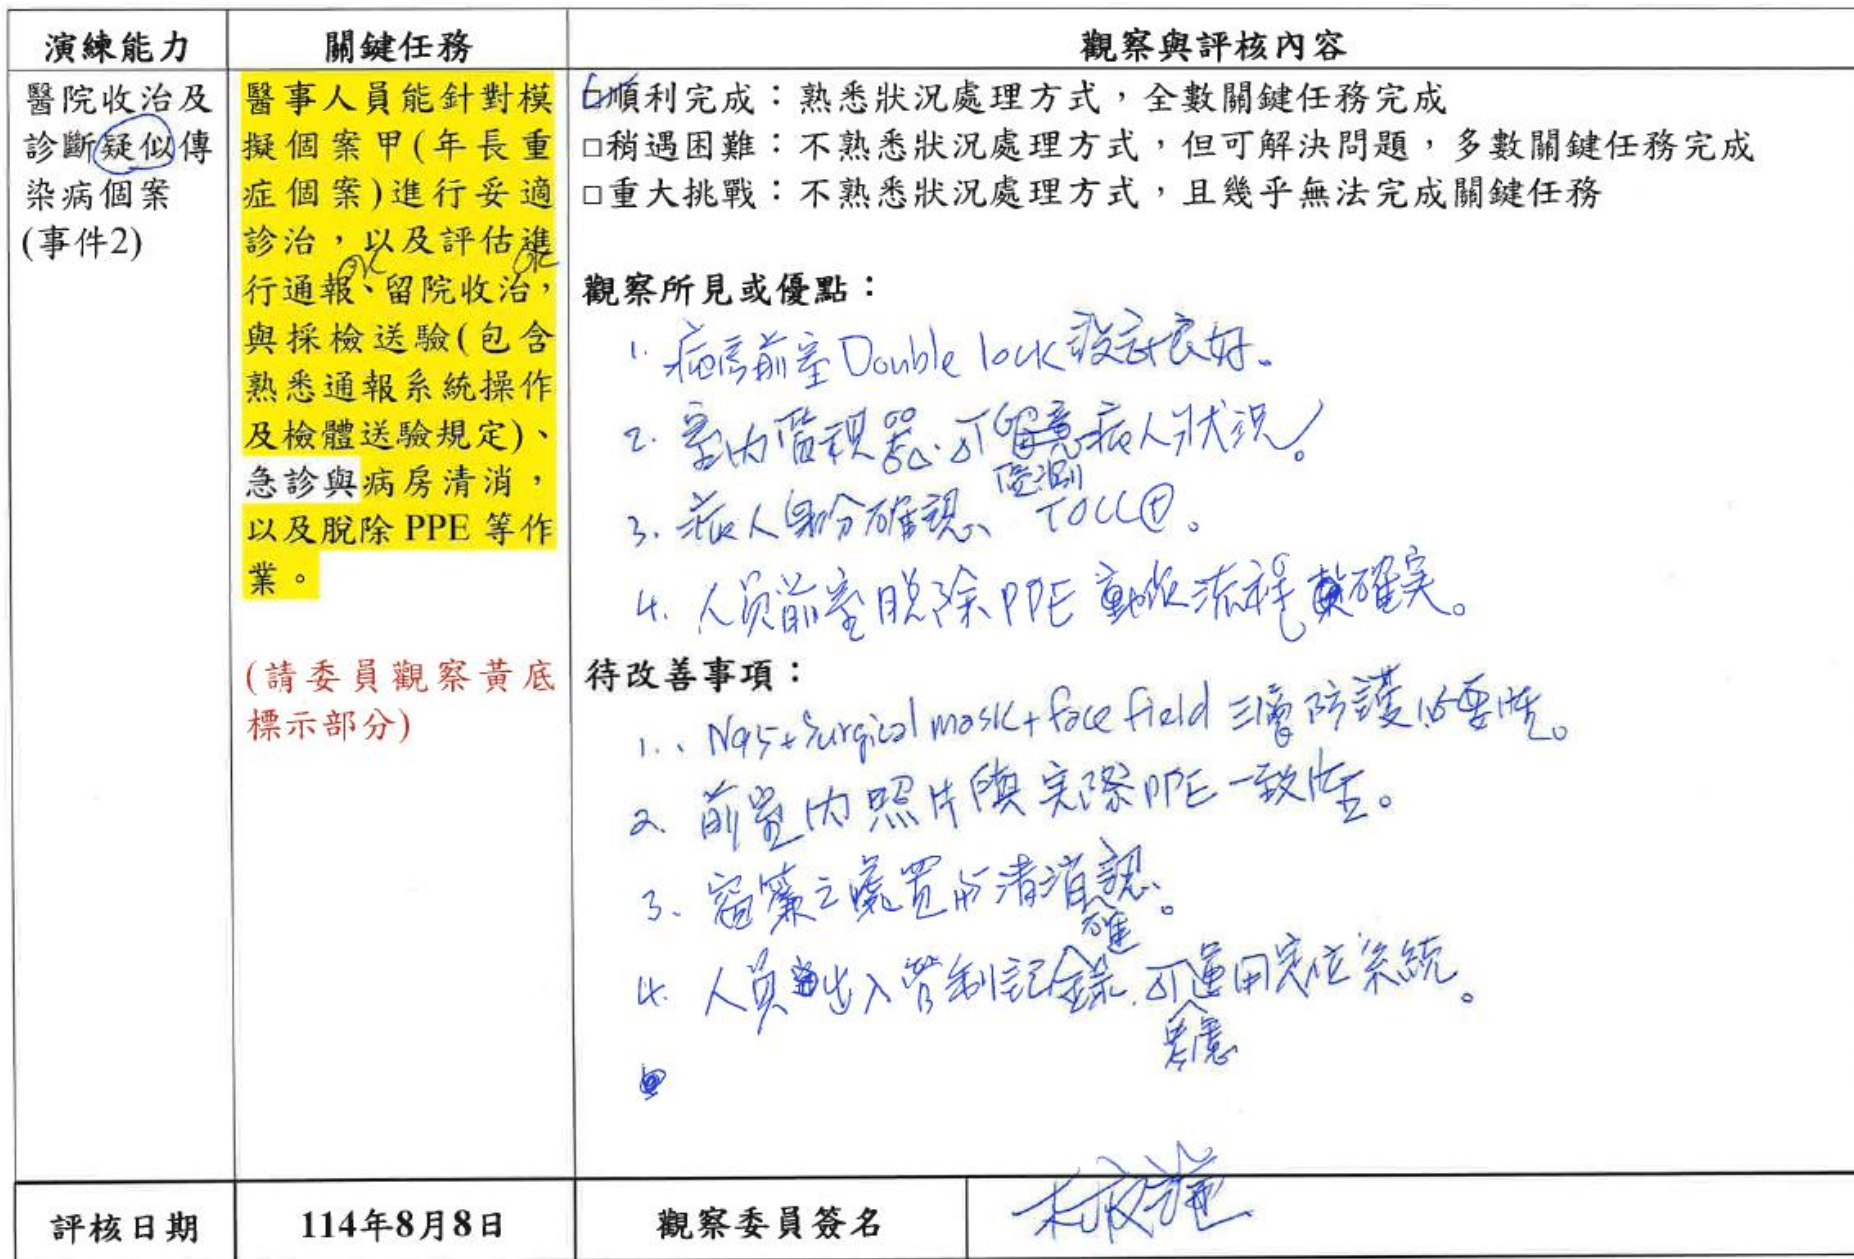 演練能力
關鍵任務
觀察與評核內容
醫院收治及
診斷疑似傳
染病個案
(事件2)
醫事人員能針對模
擬個案甲(年長重
症個案)進行妥適
診治，以及評估進
行通報、留院收治，
OK
OK
與採檢送驗(包含
熟悉通報系統操作
及檢體送驗規定)、
急診與病房清消，
以及脫除 PPE 等作
業。
(請委員觀察黃底
標示部分)
□順利完成：熟悉狀況處理方式，全數關鍵任務完成
□稍遇困難：不熟悉狀況處理方式，但可解決問題，多數關鍵任務完成
□重大挑戰：不熟悉狀況處理方式，且幾乎無法完成關鍵任務
觀察所見或優點：
1. 病房前室 Double lock 設計良好。
2. 室內監視器可留意病人狀況。
3. 病人身分確認、TOCC⊕。
4. 人員前室脫除PPE 動作流程確実。
待改善事項：
1. N95+Surgical mask+face field 三層防護必要性。
2. 前室內照片與実際PPE一致性。
3. 窗簾之處置 清消確認。
4. 人員出入管制記錄，可考慮運用定位系統。
評核日期
114年8月8日
觀察委員簽名